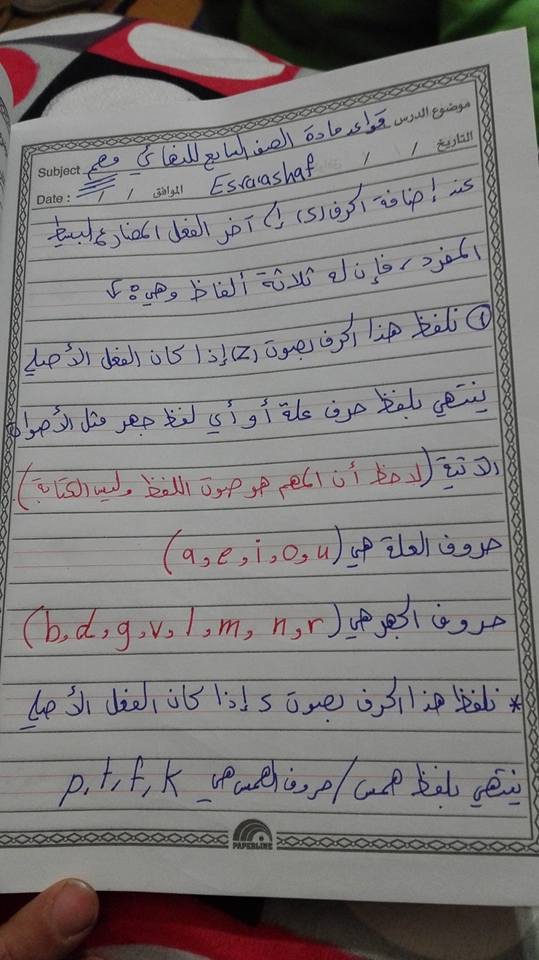 موضوع الدرس قواعد مادة الصف السابع للدفاعي مهم Subject
التاريخ / / الموافق / / Date :
Esraashaf
عند إضافة الحرف (s) إلى آخر الفعل المضارع البسيط
المفرد، فإن له ثلاثة ألفاظ وهي:
① نلفظ هذا الحرف بصوت (z) إذا كان الفعل الأصلي
ينتهي بلفظ حرف علة أو أي لفظ جهر مثل الأصوات
الآتية (لاحظ أن المهم هو صوت اللفظ وليس الكتابة)
حروف العلة هي (a, e, i, o, u)
حروف الجهر هي (b, d, g, v, l, m, n, r)
* نلفظ هذا الحرف بصوت s إذا كان الفعل الأصلي
ينتهي بلفظ همس / حروف الهمس هي p, t, f, k
PAPERLINE